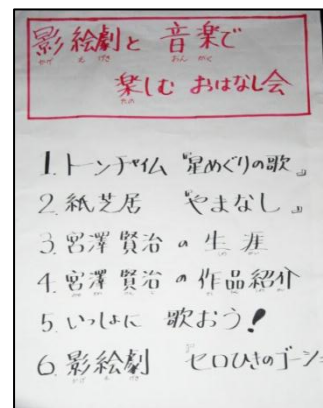 影絵劇と 音楽で
楽しむ おはなし会
1.トーンチャイム『星めぐりの歌』
2.紙芝居 『やまなし』
3.宮澤賢治の生涯
4.宮澤賢治の作品紹介
5.いっしょに 歌おう!
6.影絵劇 セロひきのゴーシ